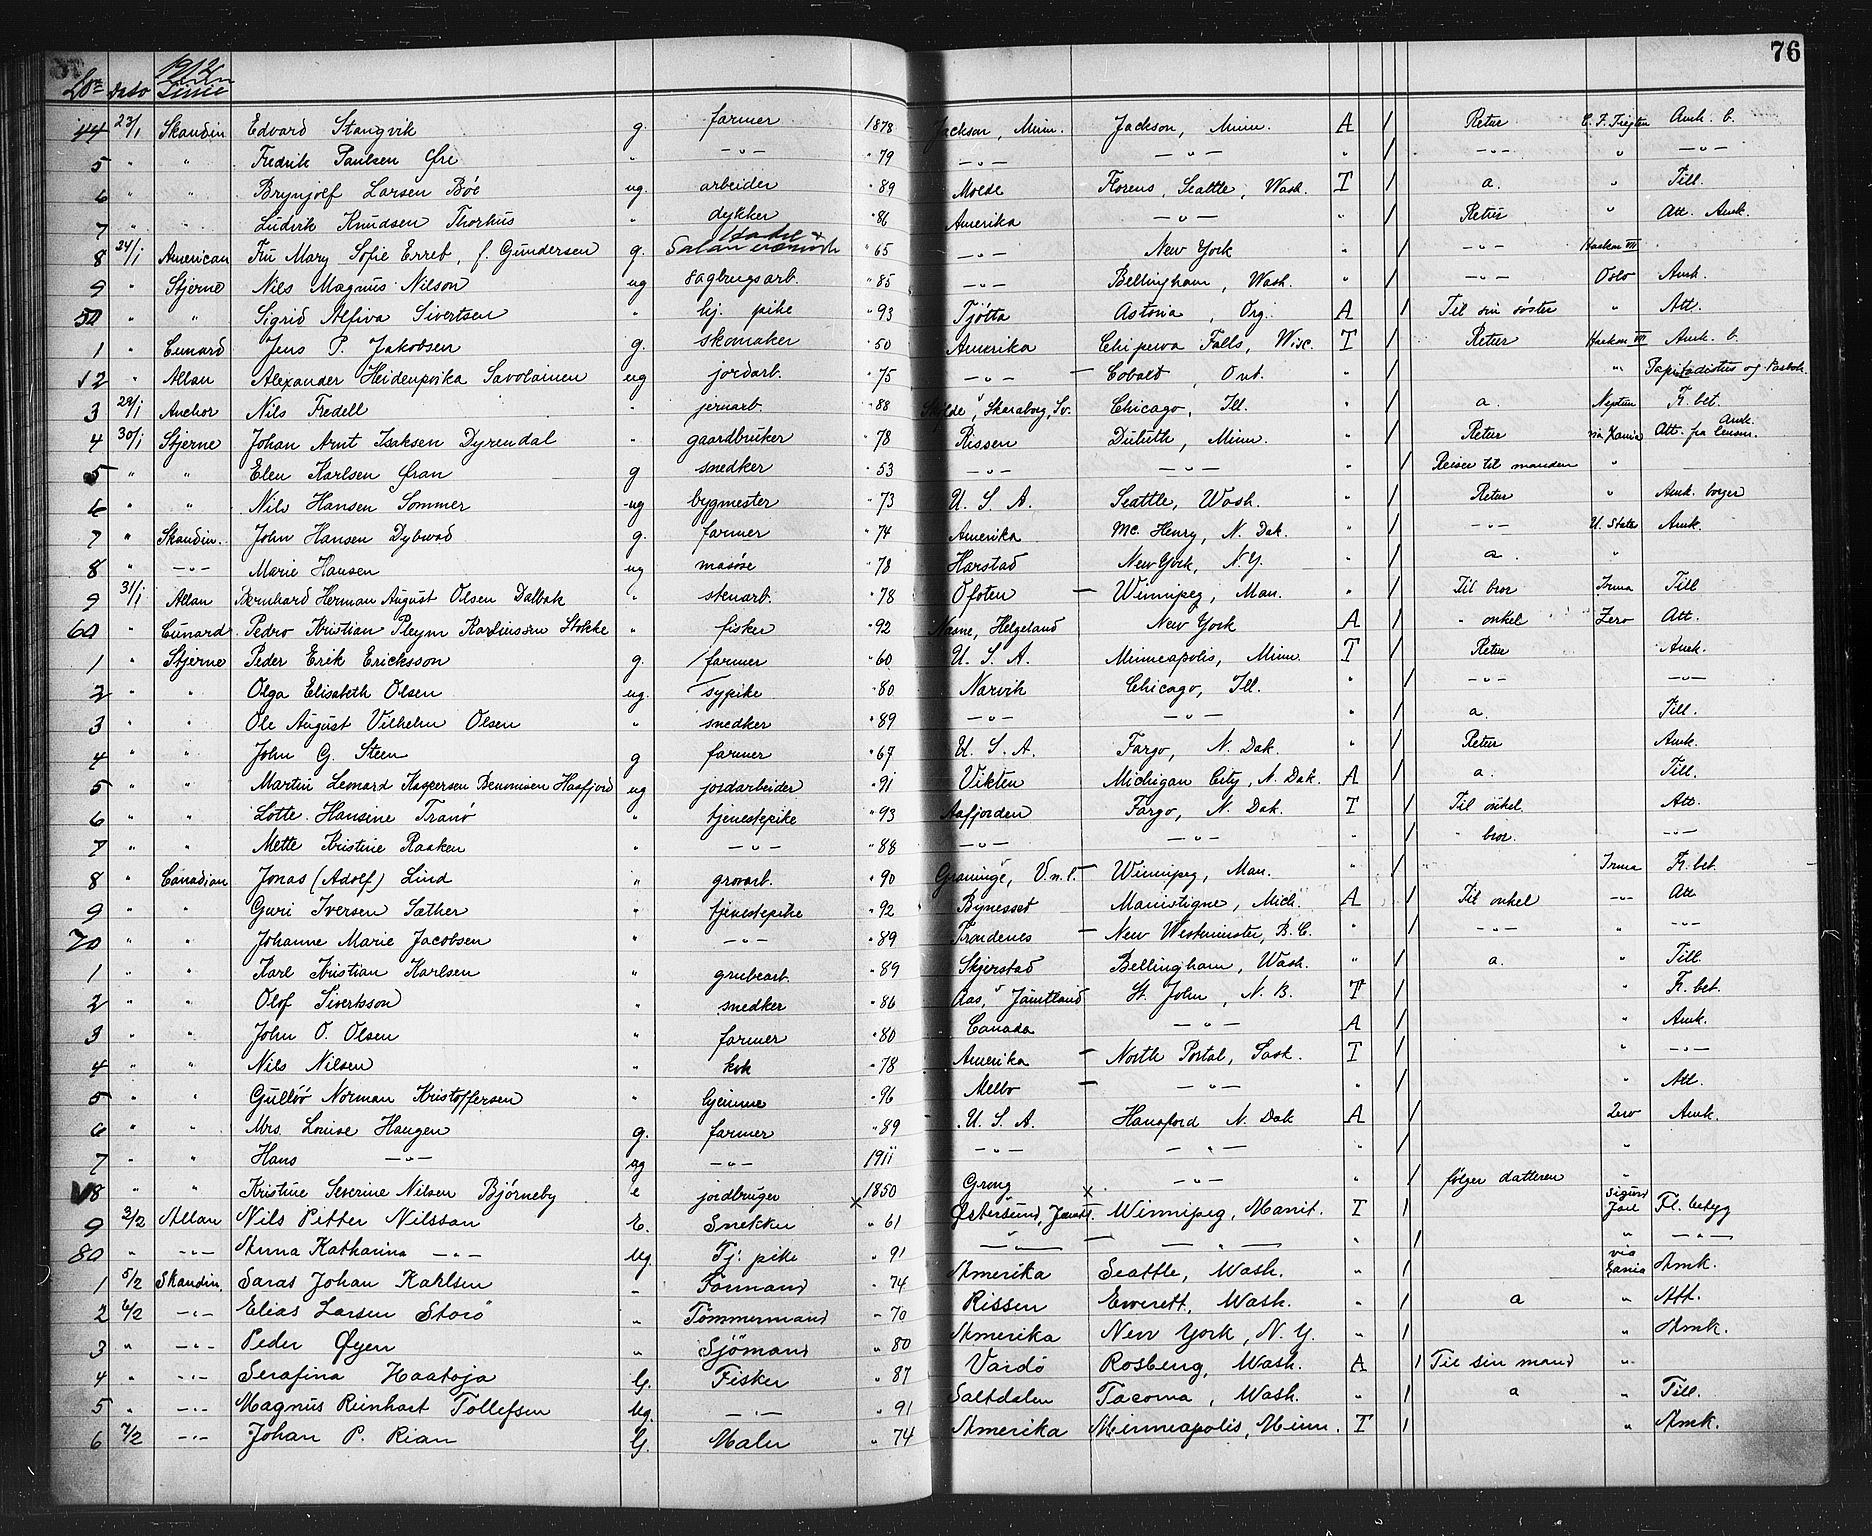 76
No Dato 1912 Linie
44 23/1 Skandin Edvard Stangvik g. farmer 1878 Jackson, Minn. Jackson, Minn. A / Retur Amk. b.
5 " " Fredrik Paulsen Øre " -"- " 79 -"- -"- " / -"- " -"-
6 " " Brynjolf Larsen Böe ug. arbeider " 89 Molde Florens, Seattle, Wash. T / a. " Till.
7 " " Ludvik Knudsen Thorhus " dykker " 86 Amerika -"- " / Retur " Att. Amk.
8 24/1 American Fru Mary Sofie Erreb, f. Gundersen g. " 65 -"- New York " / -"- Haakon VII
9 " Stjerne Nils Magnus Nilson ug sagbrugsarb. " 85 -"- Bellingham, Wash. " / -"- Oslo Amk.
50 " " Sigrid Alfiva Sivertsen " hj. pike " 93 Tjötta Astoria, Org. A / Til sin söster " Att.
1 " Cunard Jens P. Jakobsen g. skomaker " 50 Amerika Chipewa Falls, Wisc. T / Retur Haakon VII Amk. b.
2 " Allan Alexander Savolainen ug jordarb. " 75 -"- — Cobalt, Ont. " / "
3 29/1 Anchor Nils Fredell " jernarb. " 88 Skaraborg, Sv. Chicago, Ill. " / a. Neptun Fr. bet.
4 30/1 Stjerne Johan Arnt Isaksen Dyrendal " gaardbruker " 78 Rissen Duluth, Minn. " / Retur via Att. fra Amk.
5 " " Elen Karlsen Gran g snedker " 53 -"- -"- " / Reiser til manden " —
6 " " Nils Hansen Sommer ug bygmester " 73 U. S. A. Seattle, Wash. " / Retur " Amk. borger
7 " Skandin. John Hansen Dybwad g. farmer " 74 Amerika Mc. Henry, N. Dak. " / -"- U. States Amk.
8 " -"- Marie Hansen ug masöse " 78 Harstad New York, N.Y. " / a. "
9 31/1 Allan Bernhard Herman August Olsen Dalbak " stenarb. " 78 Ofoten — Winnipeg, Man. " / Til bror Irma Till
60 " Cunard Pedro Kristian Pleym Karlinssen Stokke " fisker " 92 Nasne, Helgeland New York A / " onkel Zero Att.
1 " Stjerne Peder Erik Ericksson g. farmer " 60 U. S. A. Minneapolis, Minn. T / Retur Amk.
2 " " Olga Elisabeth Olsen ug. sypike " 80 Narvik Chicago, Ill. " / -"- -"-
3 " " Ole August Vilhelm Olsen " snedker " 89 -"- -"- " / a. Till.
4 " " John G. Steen g farmer " 67 U. S. A. Fargo, N. Dak. " / Retur Amk.
5 " " Martin Leonard Kaspersen Benonisen Haafjord ug jordarbeider " 91 Vikten Michigan City, N. Dak. A / a. Till.
6 " " Lotte Hansine Tranö " tjenestepike " 93 Aafjorden Fargo, N. Dak. T / Til onkel Att.
7 " " Mette Kristine Raaken " -"- " 88 -"- -"- " / " bror. -"-
8 " Canadian Jonas (Adolf) Lind " grovarb. " 90 Graninge, V.n.l. — Winnipeg, Man. " / " Irma Fr. bet.
9 " " Guri Iversen Sæther " tjenestepike " 92 Bynesset Manistigne, Mich. A / Til onkel -"- Att
70 " " Johanne Marie Jacobsen " -"- " 89 Trondenes — New Westminster, B.C. " / -"- " -"-
1 " " Karl Kristian Karlsen " grubearb. " 89 Skjerstad Bellingham, Wash. " / a. " Till.
2 " " Olof Sivertsson " snedker " 86 Aas, Jämtland St. John, N. B. T / " Fr. bet.
3 " " John O. Olsen " farmer " 80 Canada -"- A / " Amk.
4 " " Nils Nilsen " kok " 78 Amerika — North Portal, Sask. T / " -"-
5 " " Gulløv Norman Kristoffersen " hjemme " 96 Melbo — -"- " / " Att.
6 " " Mrs. Louise Haugen g. farmer " 89 U. S. A. Hansford N. Dak A / Zero Amk.
7 " " Hans -"- ug -"- 1911 -"- -"- " / "
8 " " Kristine Severine Nilsen Björneby e jordbruger 1850 Grong -"- " / følger datteren "
9 3/2 Allan Nils Petter Nilsson E. Snekker " 61 Østersund, Jämtl. Winnipeg, Manit. T / Sigurd Jarl Fl. betyg
80 " -"- Anna Katharina -"- Ug. Tj: pike " 91 -"- -"- " / " -"-
1 5/2 Skandin. Saras Johan Kahlsen " Formand " 74 Amerika Seattle, Wash. " / via Amk.
2 6/2 -"- Elias Larsen Storö " Tömmermand " 70 Rissen Everett, Wash. " / a " Att.
3 " -"- Peder Øyen " Sjömand " 80 Amerika New York, N. Y. " / " Amk.
4 " -"- Serafina Haatoja G. Fisker " 87 Vardö Rosberg, Wash. A / Til sin mand "
5 " -"- Magnus Reinhart Tollefsen Ug. -"- " 91 Saltdalen Tacoma, Wash. " / a " Till.
6 7/2 -"- Johan P. Rian G. Maler " 74 Amerika Minneapolis, Minn. T / " Amk.